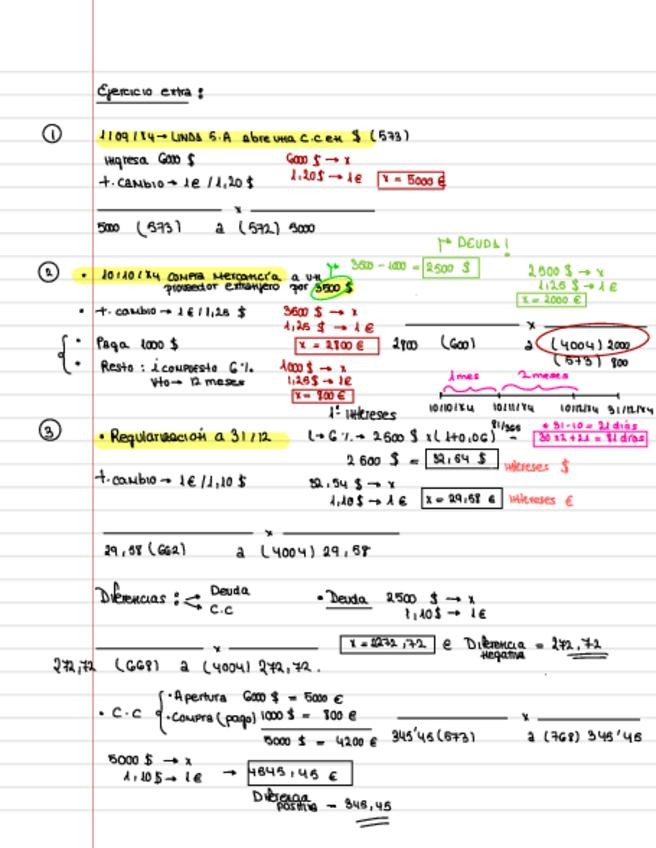 Ejercicio extra :
① 1/09/X4 → LINDA S.A abre una C.C en $ (573)
Ingresa 6000 $
6000 $ → x
t. CAMBIO → 1€ / 1,20 $
1,20 $ → 1€
x = 5000 €
x
5000 (573) a (572) 5000
② • 10/10/X4 COMPRA MERCANCÍA a un
proveedor extranjero por 3500 $
3500 - 1000 = 2500 $
DEUDA!
2500 $ → x
1,25 $ → 1€
x = 2000 €
• t. CAMBIO → 1€ / 1,25 $
3500 $ → x
1,25 $ → 1€
x = 2800 €
• Paga 1000 $
• Resto : i. compuesto 6%
Vto → 12 meses
1000 $ → x
1,25$ → 1€
x = 800 €
x
2800 (600) a (4004) 2000
(573) 800
1mes 2 meses
10/10/X4 10/11/X4 10/12/X4 31/12/X4
• 31-10 = 21 días
30 x 2 + 21 = 81 días
③ • Regularización a 31/12
1º Intereses
↳ 6% → 2500 $ x (1+0,06) 81/365 -
2500 $ = 32,54 $ intereses $
t. CAMBIO → 1€ / 1,10 $
32,54 $ → x
1,10$ → 1€ x = 29,58 € intereses €
x
29,58 (662) a (4004) 29,58
Diferencias : Deuda
C.C
• Deuda 2500 $ → x
1,10$ → 1€
x = 2272,72 € Diferencia negativa = 272,72
x
272,72 (668) a (4004) 272,72.
• C.C
• Apertura 6000 $ = 5000 €
• Compra (pago) 1000 $ = 800 €
5000 $ = 4200 €
x
345'45 (573) a (768) 345'45
5000 $ → x
1,10$ → 1€
→ 4545,45 €
Diferencia positiva - 345,45